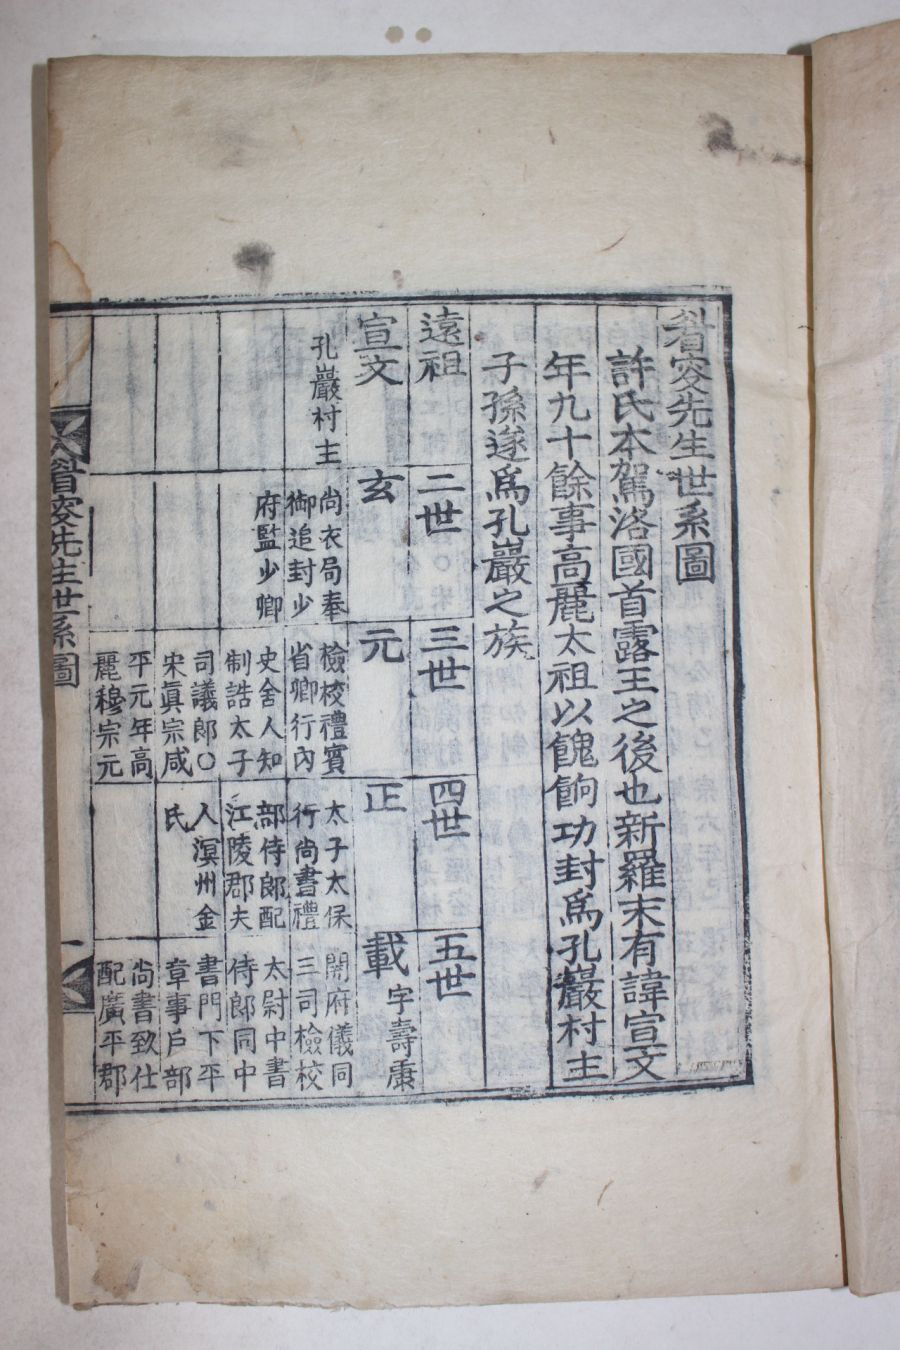 睂叜先生世系圖
許氏本駕洛國首露王之後也新羅末有諱宣文
年九十餘事高麗太祖以餽餉功封爲孔巖村主
子孫遂爲孔巖之族
遠祖
宣文
孔巖村主
二世
玄
尚衣局奉
御追封少
府監少卿
三世
元
檢校禮賓
省卿行內
史舍人知
制誥太子
司議郎○
宋眞宗咸
平元年高
麗穆宗元
四世
正
太子太保
行尚書禮
部侍郎配
江陵郡夫
人溟州金
氏
五世
載 字壽康
開府儀同
三司檢校
太尉中書
侍郎同中
書門下平
章事戶部
尚書致仕
配廣平郡
睂叜先生世系圖
一